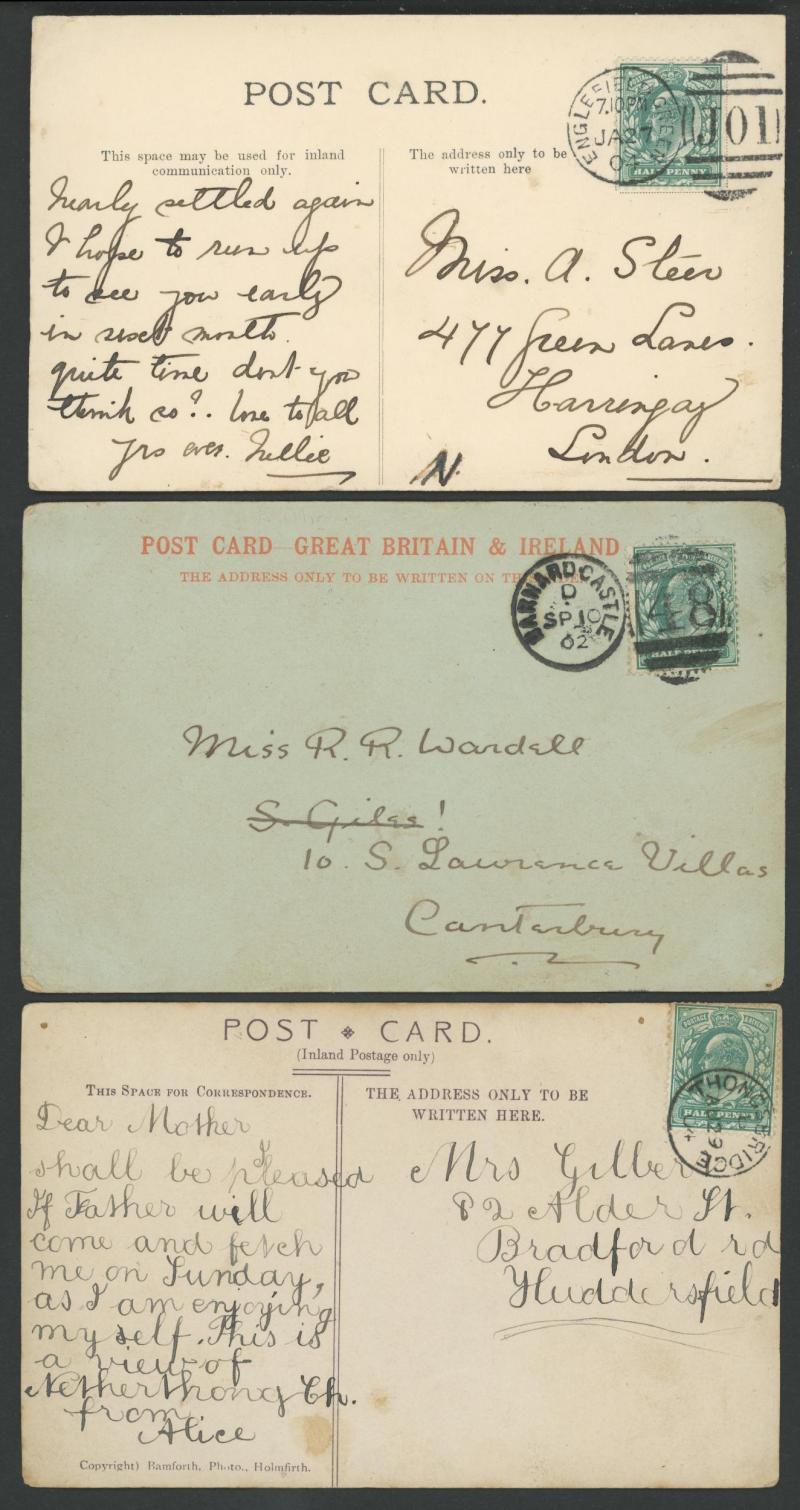 POST CARD.
This space may be used for inland
communication only.
The address only to be
written here
ENGLEFIELD GREEN
7.10PM
JA 27
04
J01
HALF PENNY
Nearly settled again
I hope to run up
to see you early
in next month.
quite time dont you
think so?. love to all
yrs ever. Nellie
Miss. A. Steer
477 Green Lanes.
Harringay
London.
N.
POST CARD GREAT BRITAIN & IRELAND
THE ADDRESS ONLY TO BE WRITTEN ON
BARNARD CASTLE
D
SP 10
02
48
HALF PENNY
Miss R. R. Wardell
S. Giles!
10. S. Lawrence Villas
Canterbury
POST CARD.
(Inland Postage only)
THIS SPACE FOR CORRESPONDENCE.
THE ADDRESS ONLY TO BE
WRITTEN HERE.
POSTAGE
HALF PENNY
THONGSBRIDGE
Dear Mother
I
shall be pleased
If Father will
come and fetch
me on Sunday,
as I am enjoying
myself. This is
a view of
Netherthong Ch.
from
Alice
Mrs Gilber
82 Alder St.
Bradford rd
Huddersfield
Copyright) Bamforth, Photo., Holmfirth.